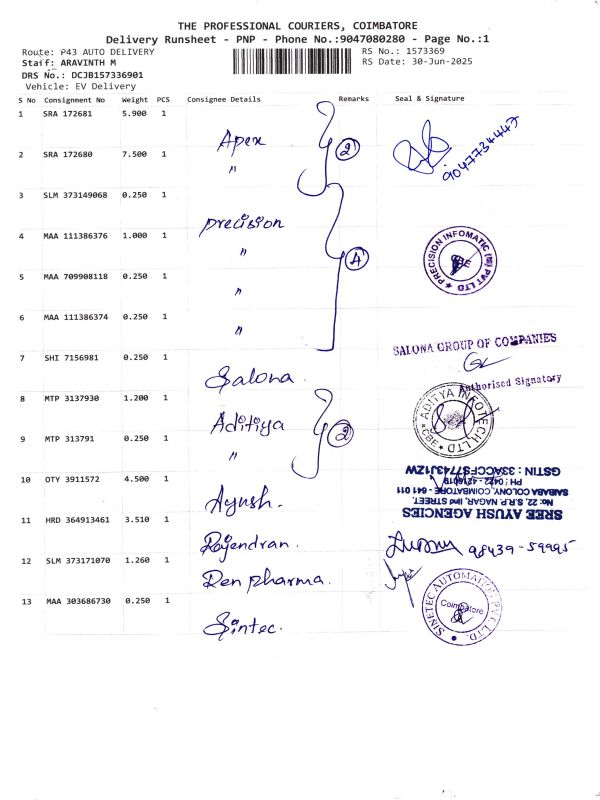 THE PROFESSIONAL COURIERS, COIMBATORE
Delivery Runsheet - PNP - Phone No.:9047080280 - Page No.:1
Route: P43 AUTO DELIVERY
RS No.: 1573369
Staff: ARAVINTH M
RS Date: 30-Jun-2025
DRS No.: DCJB157336901
Vehicle: EV Delivery
S No Consignment No Weight PCS Consignee Details Remarks Seal & Signature
1 SRA 172681 5.900 1 Apex
2 SRA 172680 7.500 1 " 2 9047734447
3 SLM 373149068 0.250 1 precision
4 MAA 111386376 1.000 1 " 4
PRECISION INFOMATIC (M) PVT LTD
5 MAA 709908118 0.250 1 "
6 MAA 111386374 0.250 1 "
SALONA GROUP OF COMPANIES
7 SHI 7156981 0.250 1 Salona
Authorised Signatory
8 MTP 3137930 1.200 1 Aditiya
ADITYA INFOTECH LTD
CBE
9 MTP 313791 0.250 1 " 2
10 OTY 3911572 4.500 1 Ayush.
SREE AYUSH AGENCIES
No: 22, S.R.P. NAGAR, IInd STREET,
SAIBABA COLONY, COIMBATORE - 641 011
PH : 0422 - 4216019
GSTIN : 33ACCFS7743J1ZW
11 HRD 364913461 3.510 1 Rajendran. 98439-59995
12 SLM 373171070 1.260 1 Ren pharma.
13 MAA 303686730 0.250 1 Sintec.
SINETEC AUTOMATION PVT. LTD.
Coimbatore